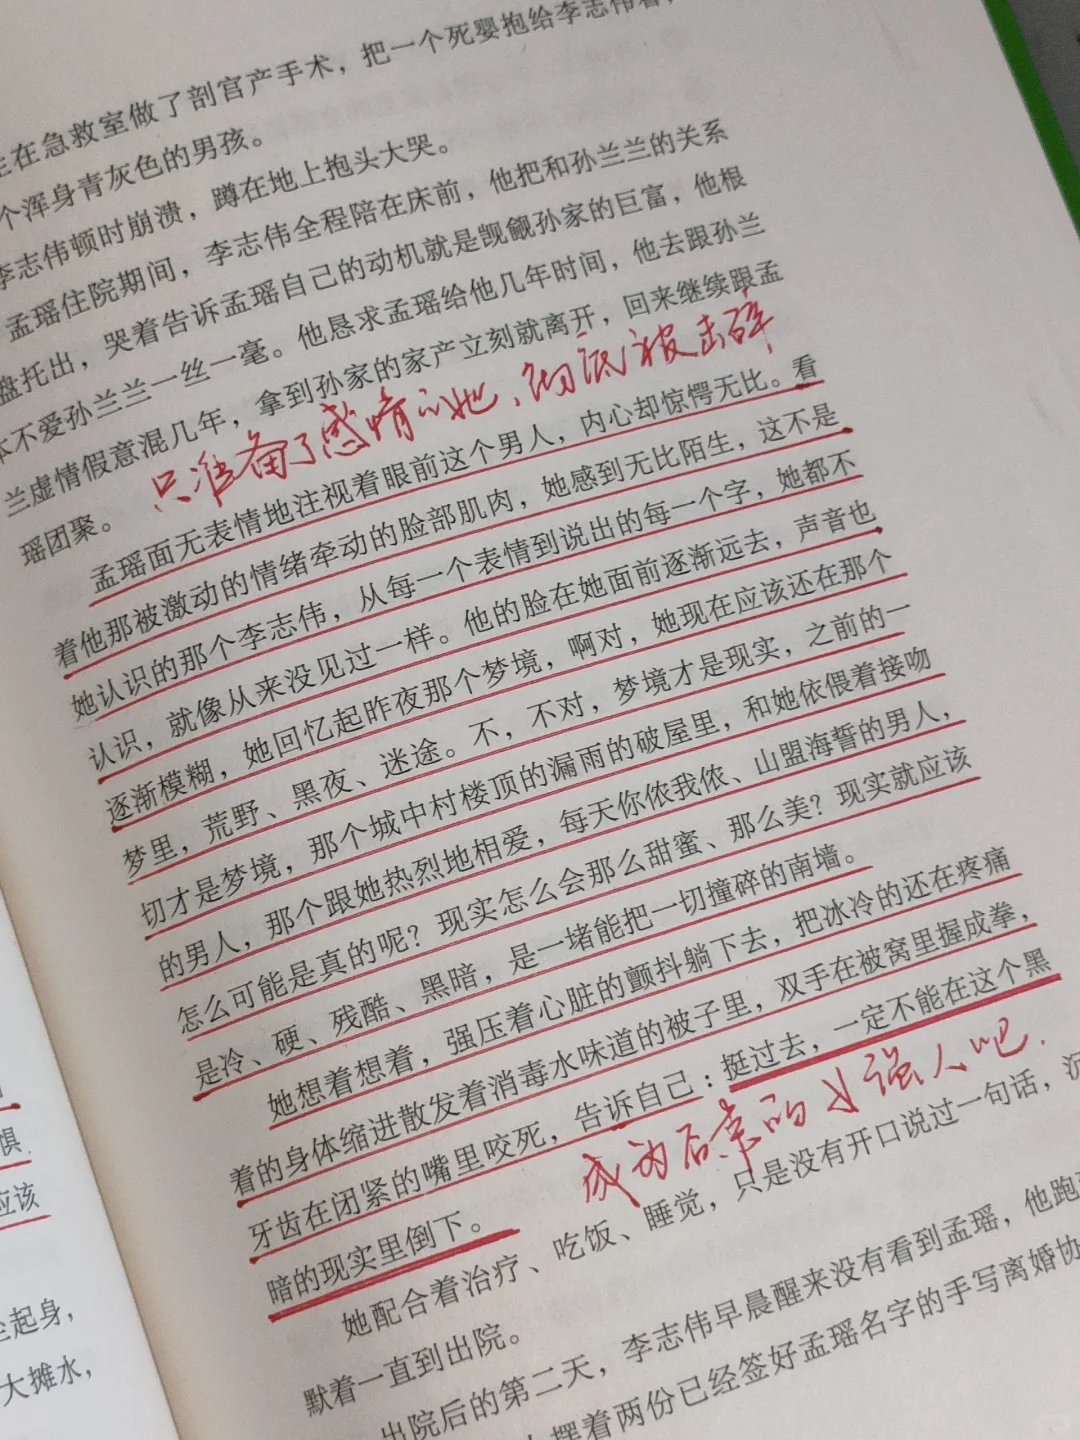 在急救室做了剖宫产手术，把一个死婴抱给李志伟看，
个浑身青灰色的男孩。
李志伟顿时崩溃，蹲在地上抱头大哭。
孟瑶住院期间，李志伟全程陪在床前，他把和孙兰兰的关系
盘托出，哭着告诉孟瑶自己的动机就是觊觎孙家的巨富，他根
本不爱孙兰兰一丝一毫。他恳求孟瑶给他几年时间，他去跟孙兰
兰虚情假意混几年，拿到孙家的家产立刻就离开，回来继续跟孟
瑶团聚。
只准备了感情的她、彻底被击碎
孟瑶面无表情地注视着眼前这个男人，内心却惊愕无比。看
着他那被激动的情绪牵动的脸部肌肉，她感到无比陌生，这不是
她认识的那个李志伟，从每一个表情到说出的每一个字，她都不
认识，就像从来没见过一样。他的脸在她面前逐渐远去，声音也
逐渐模糊，她回忆起昨夜那个梦境，啊对，她现在应该还在那个
梦里，荒野、黑夜、迷途。不，不对，梦境才是现实，之前的一
切才是梦境，那个城中村楼顶的漏雨的破屋里，和她依偎着接吻
的男人，那个跟她热烈地相爱，每天你侬我侬、山盟海誓的男人，
怎么可能是真的呢？现实怎么会那么甜蜜、那么美？现实就应该
是冷、硬、残酷、黑暗，是一堵能把一切撞碎的南墙。
她想着想着，强压着心脏的颤抖躺下去，把冰冷的还在疼痛
着的身体缩进散发着消毒水味道的被子里，双手在被窝里握成拳，
牙齿在闭紧的嘴里咬死，告诉自己：挺过去，一定不能在这个黑
暗的现实里倒下。
成为后来的女强人吧.
她配合着治疗、吃饭、睡觉，只是没有开口说过一句话，沉
默着一直到出院。
出院后的第二天，李志伟早晨醒来没有看到孟瑶，他跑
摆着两份已经签好孟瑶名字的手写离婚协
惧.
应该
起身，
大摊水，